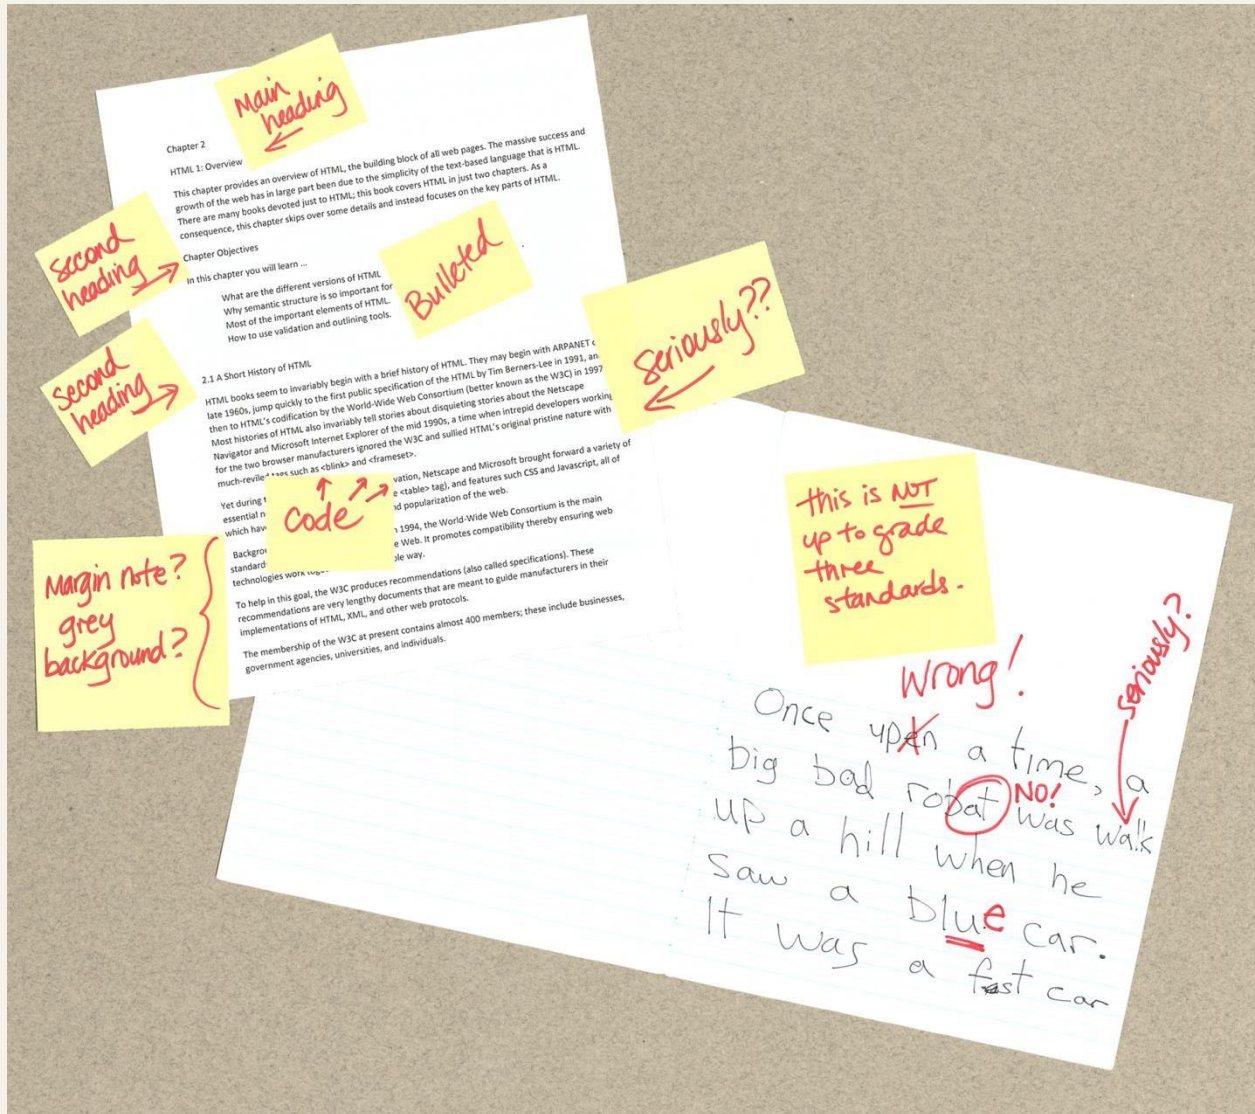 Main
heading
Chapter 2
HTML 1: Overview
This chapter provides an overview of HTML, the building block of all web pages. The massive success and
growth of the web has in large part been due to the simplicity of the text-based language that is HTML.
There are many books devoted just to HTML; this book covers HTML in just two chapters. As a
consequence, this chapter skips over some details and instead focuses on the key parts of HTML.
second
heading
Chapter Objectives
In this chapter you will learn ...
What are the different versions of HTML
Why semantic structure is so important for
Most of the important elements of HTML.
How to use validation and outlining tools.
Bulleted
second
heading
2.1 A Short History of HTML
HTML books seem to invariably begin with a brief history of HTML. They may begin with ARPANET
late 1960s, jump quickly to the first public specification of the HTML by Tim Berners-Lee in 1991, an
then to HTML's codification by the World-Wide Web Consortium (better known as the W3C) in 1997
Most histories of HTML also invariably tell stories about disquieting stories about the Netscape
Navigator and Microsoft Internet Explorer of the mid 1990s, a time when intrepid developers working
for the two browser manufacturers ignored the W3C and sullied HTML's original pristine nature with
much-reviled tags such as <blink> and <frameset>.
seriously??
Yet during vation, Netscape and Microsoft brought forward a variety of
essential e <table> tag), and features such CSS and Javascript, all of
which hav d popularization of the web.
Code
Backgrou 1994, the World-Wide Web Consortium is the main
standard e Web. It promotes compatibility thereby ensuring web
technologies work ble way.
To help in this goal, the W3C produces recommendations (also called specifications). These
recommendations are very lengthy documents that are meant to guide manufacturers in their
implementations of HTML, XML, and other web protocols.
The membership of the W3C at present contains almost 400 members; these include businesses,
government agencies, universities, and individuals.
Margin note?
grey
background?
this is NOT
up to grade
three
standards.
Wrong!
seriously?
Once upen a time, a
big bad robat was walk
NO!
up a hill when he
saw a blue car.
It was a fast car